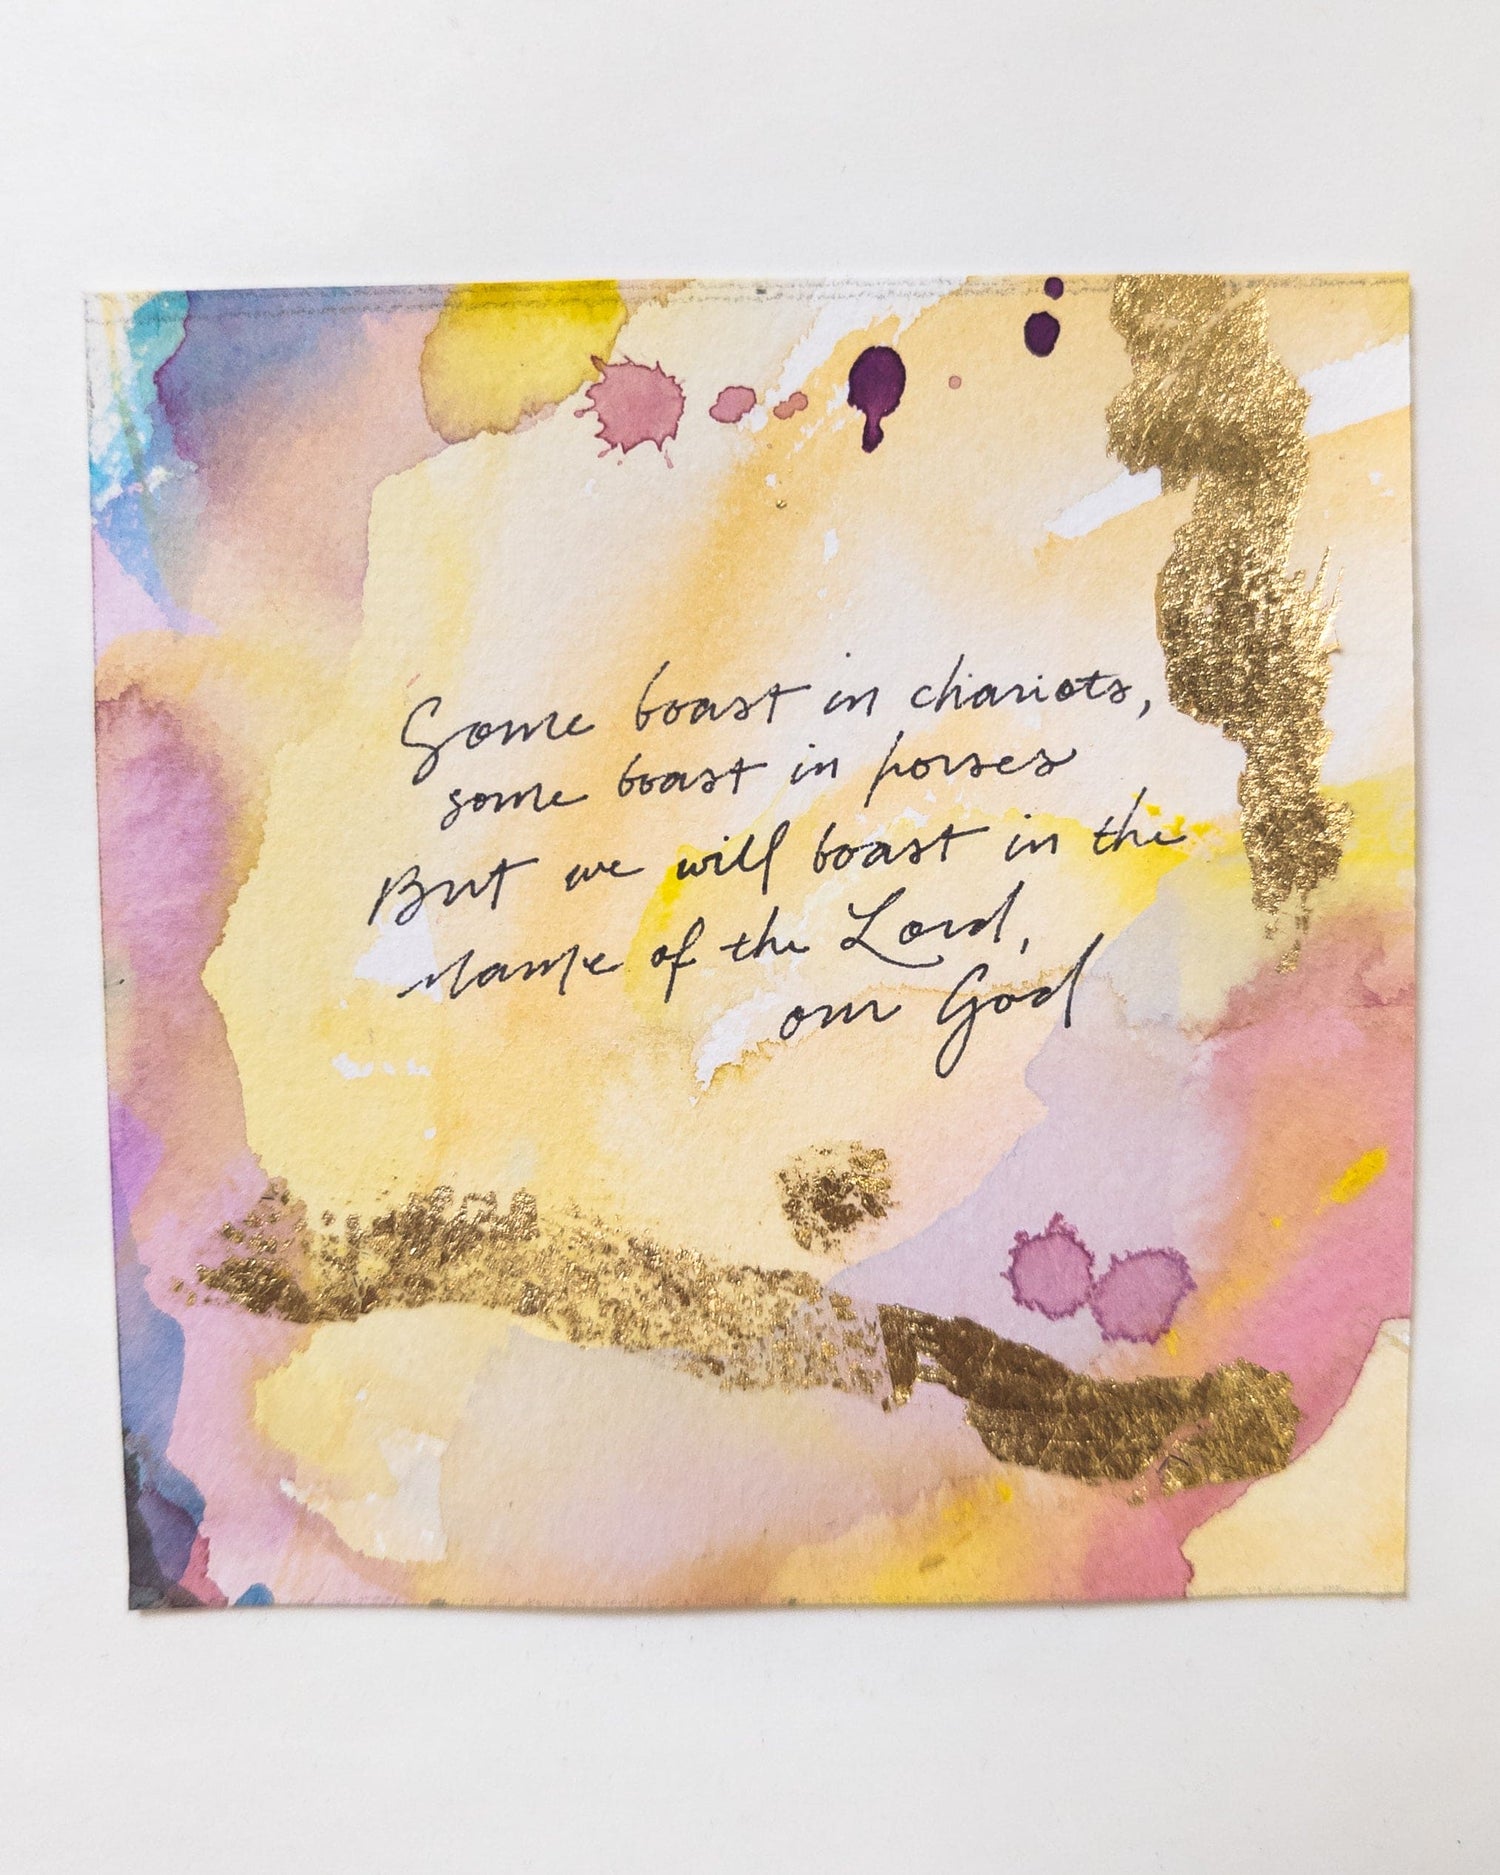 Some boast in chariots,
some boast in horses
But we will boast in the
name of the Lord,
our God